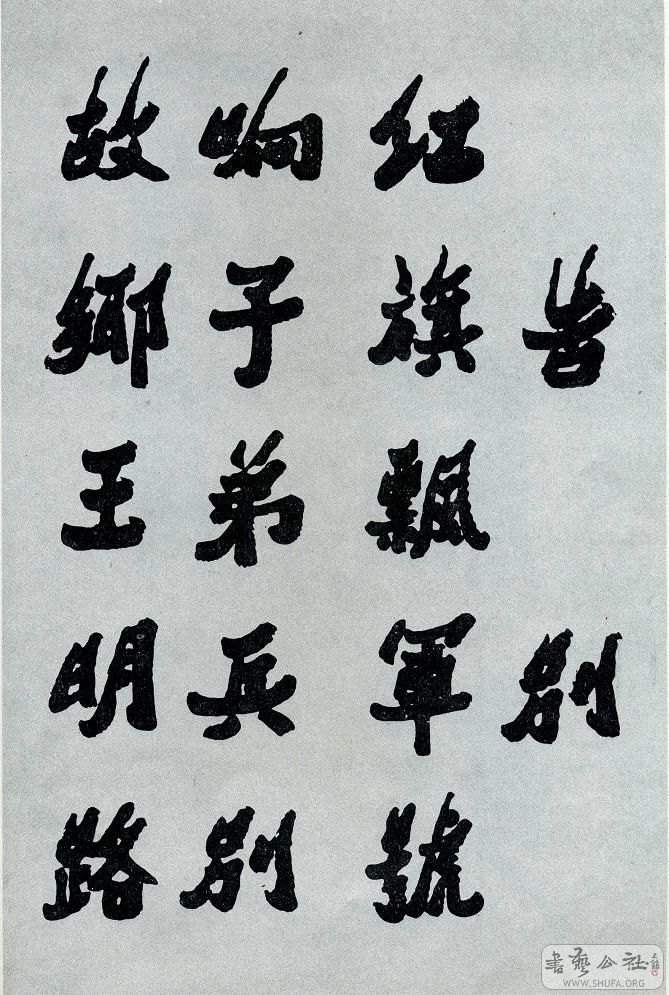 告别
红旗飘軍號
响子弟兵别
故鄉王明路
書藝公社
WWW.SHUFA.ORG